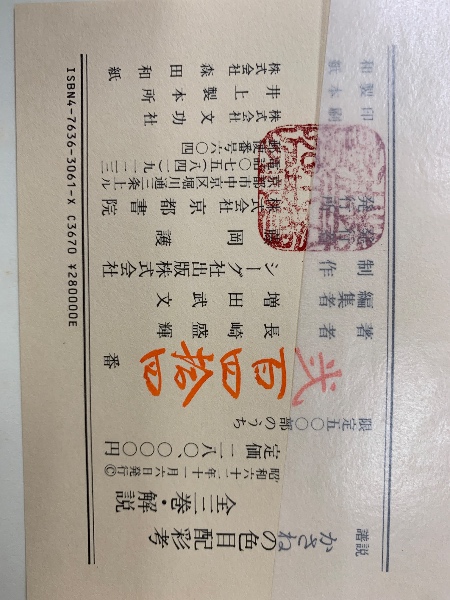 譜説
かさねの色目配彩考
全三巻・解説
昭和六十二年十一月六日発行©
定価 二八〇、〇〇〇円
限定五〇〇部のうち
弐百四拾四番
著者 長崎盛輝
編集者 増田武文
制作 シーグ社出版株式会社
発行者 岡護
発行所 株式会社京都書院
京都市中京区堀川通三条上ル
郵便番号六〇四
印刷 株式会社文功社
製本 井上製本所
和紙 株式会社森田和紙
ISBN4-7636-3061-X C3670 ¥280000E